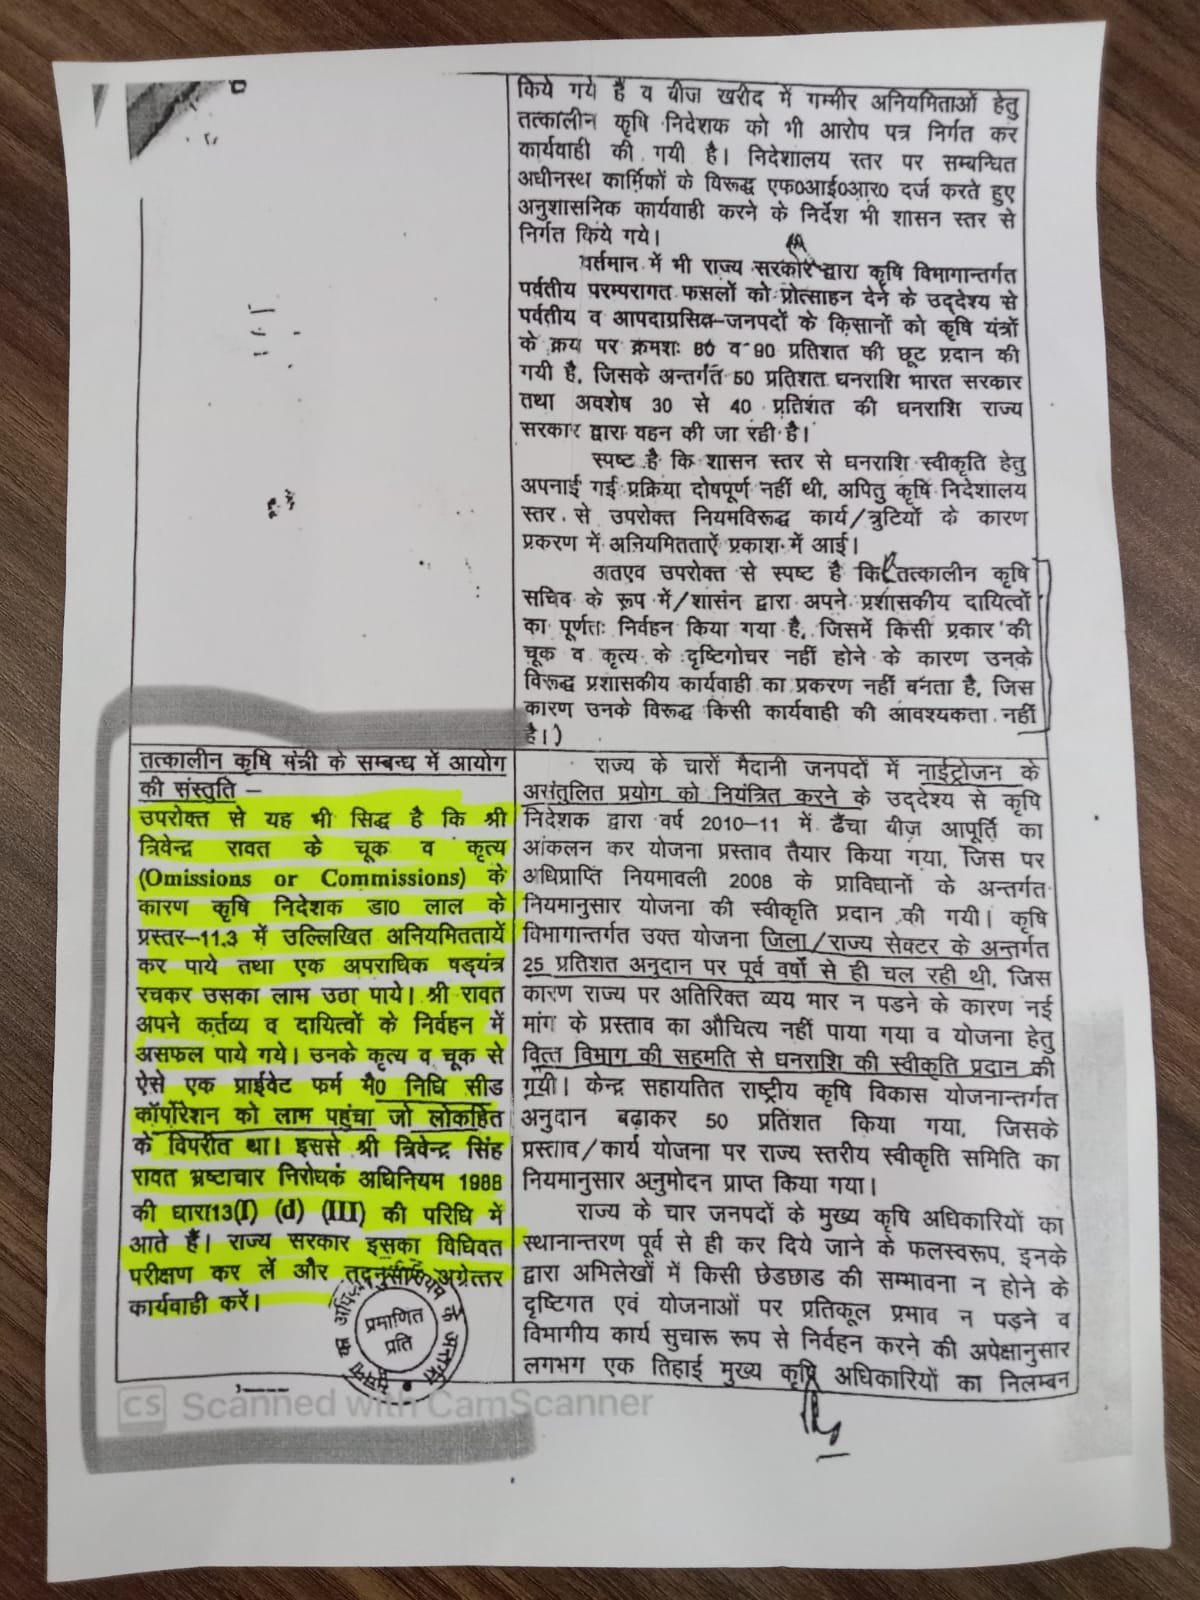 किये गये हैं व बीज खरीद में गम्भीर अनियमिताओं हेतु
तत्कालीन कृषि निदेशक को भी आरोप पत्र निर्गत कर
कार्यवाही की गयी है। निदेशालय स्तर पर सम्बन्धित
अधीनस्थ कार्मिकों के विरूद्ध एफ0आई0आर0 दर्ज करते हुए
अनुशासनिक कार्यवाही करने के निर्देश भी शासन स्तर से
निर्गत किये गये।
वर्तमान में भी राज्य सरकार द्वारा कृषि विभागान्तर्गत
पर्वतीय परम्परागत फसलों को प्रोत्साहन देने के उद्देश्य से
पर्वतीय व आपदाग्रसित-जनपदों के किसानों को कृषि यंत्रों
के क्रय पर क्रमशः 80 व 90 प्रतिशत की छूट प्रदान की
गयी है, जिसके अन्तर्गत 50 प्रतिशत धनराशि भारत सरकार
तथा अवशेष 30 से 40 प्रतिशत की धनराशि राज्य
सरकार द्वारा वहन की जा रही है।
स्पष्ट है कि शासन स्तर से धनराशि स्वीकृति हेतु
अपनाई गई प्रक्रिया दोषपूर्ण नहीं थी, अपितु कृषि निदेशालय
स्तर से उपरोक्त नियमविरूद्ध कार्य/त्रुटियों के कारण
प्रकरण में अनियमितताऐं प्रकाश में आई।
अतएव उपरोक्त से स्पष्ट है कि तत्कालीन कृषि
सचिव के रूप में/शासन द्वारा अपने प्रशासकीय दायित्वों
का पूर्णतः निर्वहन किया गया है, जिसमें किसी प्रकार की
चूक व कृत्य के दृष्टिगोचर नहीं होने के कारण उनके
विरूद्ध प्रशासकीय कार्यवाही का प्रकरण नहीं बनता है, जिस
कारण उनके विरूद्ध किसी कार्यवाही की आवश्यकता नहीं
है।)
तत्कालीन कृषि मंत्री के सम्बन्ध में आयोग
की संस्तुति –
उपरोक्त से यह भी सिद्ध है कि श्री
त्रिवेन्द्र रावत के चूक व कृत्य
(Omissions or Commissions) के
कारण कृषि निदेशक डा0 लाल के
प्रस्तर-11.3 में उल्लिखित अनियमिततायें
कर पाये तथा एक अपराधिक षड्यंत्र
रचकर उसका लाभ उठा पाये। श्री रावत
अपने कर्तव्य व दायित्वों के निर्वहन में
असफल पाये गये। उनके कृत्य व चूक से
ऐसे एक प्राईवेट फर्म मै0 निधि सीड
कॉर्पोरेशन को लाभ पहुंचा जो लोकहित
के विपरीत था। इससे श्री त्रिवेन्द्र सिंह
रावत भ्रष्टाचार निरोधक अधिनियम 1988
की धारा13(I) (d) (III) की परिधि में
आते हैं। राज्य सरकार इसका विधिवत
परीक्षण कर लें और तद्नुसार अग्रेत्तर
कार्यवाही करें।
राज्य के चारों मैदानी जनपदों में नाईट्रोजन के
असंतुलित प्रयोग को नियंत्रित करने के उद्देश्य से कृषि
निदेशक द्वारा वर्ष 2010-11 में ढैंचा बीज आपूर्ति का
आंकलन कर योजना प्रस्ताव तैयार किया गया, जिस पर
अधिप्राप्ति नियमावली 2008 के प्राविधानों के अन्तर्गत
नियमानुसार योजना की स्वीकृति प्रदान की गयी। कृषि
विभागान्तर्गत उक्त योजना जिला/राज्य सेक्टर के अन्तर्गत
25 प्रतिशत अनुदान पर पूर्व वर्षों से ही चल रही थी, जिस
कारण राज्य पर अतिरिक्त व्यय भार न पडने के कारण नई
मांग के प्रस्ताव का औचित्य नहीं पाया गया व योजना हेतु
वित्त विभाग की सहमति से धनराशि की स्वीकृति प्रदान की
गयी। केन्द्र सहायतित राष्ट्रीय कृषि विकास योजनान्तर्गत
अनुदान बढ़ाकर 50 प्रतिशत किया गया, जिसके
प्रस्ताव/कार्य योजना पर राज्य स्तरीय स्वीकृति समिति का
नियमानुसार अनुमोदन प्राप्त किया गया।
राज्य के चार जनपदों के मुख्य कृषि अधिकारियों का
स्थानान्तरण पूर्व से ही कर दिये जाने के फलस्वरूप, इनके
द्वारा अभिलेखों में किसी छेडछाड की सम्भावना न होने के
दृष्टिगत एवं योजनाओं पर प्रतिकूल प्रभाव न पड़ने व
विभागीय कार्य सुचारू रूप से निर्वहन करने की अपेक्षानुसार
लगभग एक तिहाई मुख्य कृषि अधिकारियों का निलम्बन
प्रमाणित
प्रति
CS Scanned with CamScanner